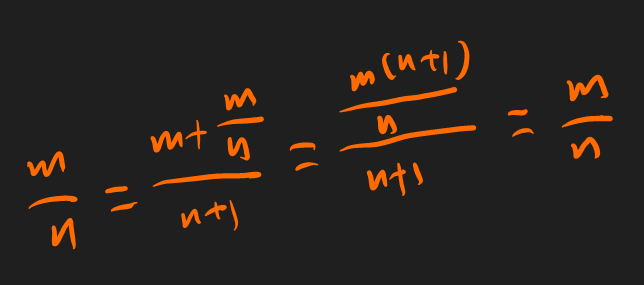 m/n = (m + m/n)/(n+1) = (m(n+1)/n)/(n+1) = m/n